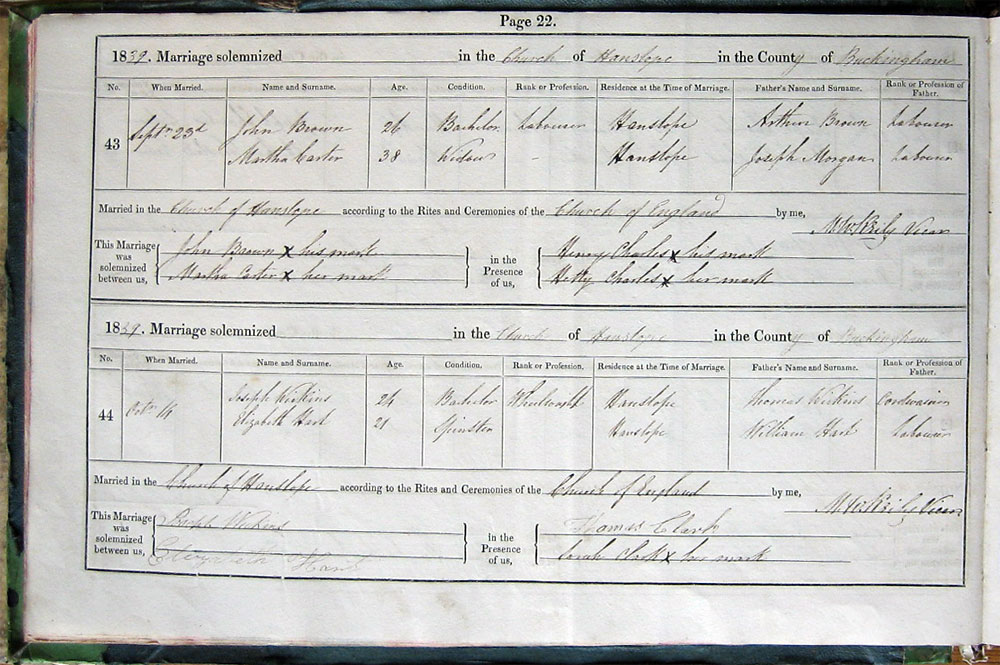 Page 22.
1839. Marriage solemnized in the Church of Hanslope in the County of Buckingham
No. When Married. Name and Surname. Age. Condition. Rank or Profession. Residence at the Time of Marriage. Father's Name and Surname. Rank or Profession of Father.
43 Septr 23d John Brown 26 Bachelor Labourer Hanslope Arthur Brown Labourer
Martha Carter 38 Widow - Hanslope Joseph Morgan Labourer
Married in the Church of Hanslope according to the Rites and Ceremonies of the Church of England by me, Vicar
This Marriage was solemnized between us,
John Brown x his mark
Martha Carter x her mark
in the Presence of us,
Henry Charles x his mark
Hetty Charles x her mark
1839. Marriage solemnized in the Church of Hanslope in the County of Buckingham
No. When Married. Name and Surname. Age. Condition. Rank or Profession. Residence at the Time of Marriage. Father's Name and Surname. Rank or Profession of Father.
44 Octr 14 Joseph 24 Bachelor Hanslope Thomas Cordwainer
Elizabeth Hart 21 Spinster Hanslope William Hart Labourer
Married in the Church of Hanslope according to the Rites and Ceremonies of the Church of England by me, Vicar
This Marriage was solemnized between us,
Elizabeth Hart
in the Presence of us,
Thomas Clark
Sarah Clark x her mark